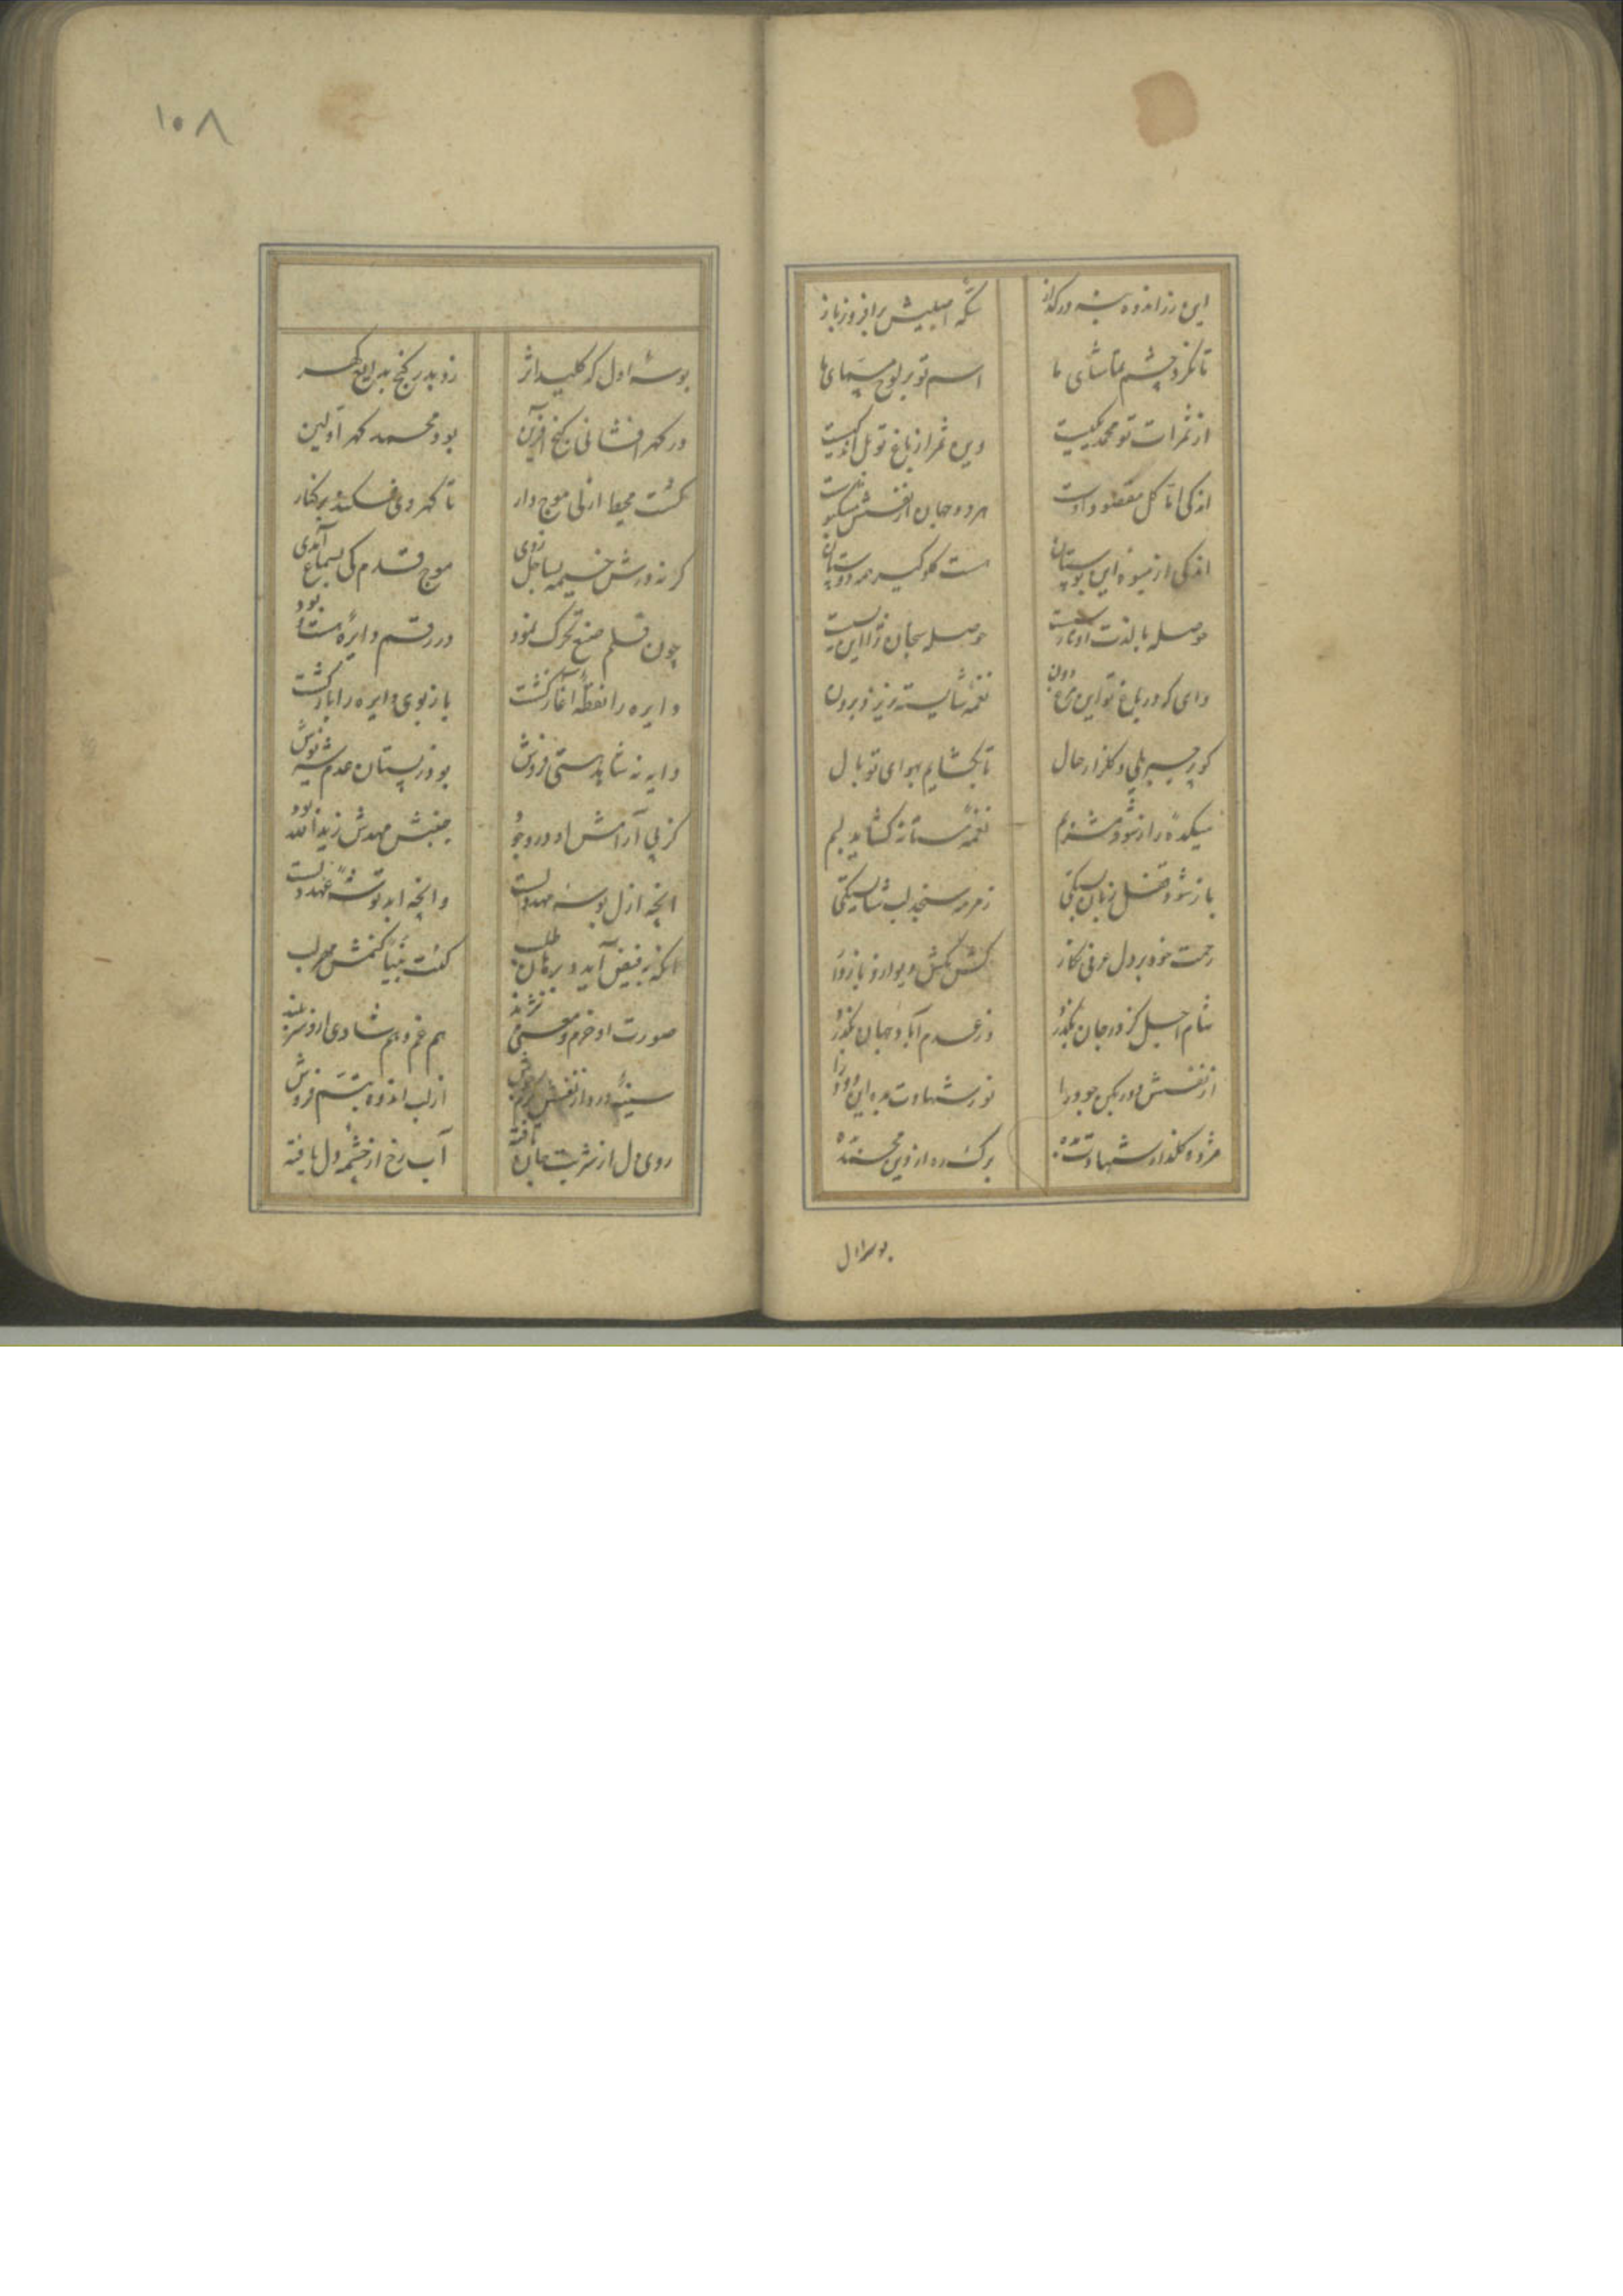 این زر اندوه بته در گداز
سکه اصلیش برافروز باز
تا نگرد چشم تماشای ما
اسم تو بر لوح مسمای ما
از ثمرات تو محمد یکیست
وین ثمر از باغ تو بل اندکیست
اندکی اما کل مقصود اوست
هر دو جهان از نفسش مشکبوست
اندکی از میوه این بوستان
هست گلوگیر همه دوستان
حوصله با لذت او یار نیست
حوصله سنجان را این نیست
وای که در باغ تو این مرغ دون
نغمه شایسته نریزد برون
کو پر جبریلی و گلزار حال
تا بگشایم بهوای تو بال
میکده راز شود مشربم
نغمه مستانه گشاید لبم
باز شود قفل زبان بستگی
زمزمه سنجد لب شایستگی
رحمت خود بر دل عرفی گمار
کش مکش دیو ازو باز دار
شام اجل کز در جان بگذرد
وز عدم آباد جهان بگذرد
از نفسش دور بکن جود را
نور شهادت بده این دود را
مژده گلزار شهادت بده
برگ ره از دین محمد بده
بوسه اول
۱۰۸
بوسه اول که کلید اثر
زد بدر گنج بدایع گهر
در گهرافشانی گنج آفرین
بود محمد گهر اولین
گشت محیط ازلی موج دار
تا گهر وی فکند بر کنار
گر نه درش خیمه بساحل زدی
موج قدم کی بسماع آمدی
چون قلم صنع تحرک نمود
در رقم دایره مست بود
دایره را نقطه آغاز گشت
باز نوی دایره را باز گشت
دایه نه شاید هستی فروش
بود ز پستان عدم شیر نوش
کز پی آرامش او در وجود
جنبش مهدش ز ید الله بود
آنچه ازل بوسه مهد ولست
وآنچه ابد توشه عهد ولست
آنکه ز فیض آید و برهان طلب
کنت نبیا کنمش مهر لب
صورت او خرم و معنی نژند
هم غم و هم شادی ازو سربلند
سینه درد از نفسش پر ز جوش
از لب اندوه تبسم فروش
روی دل از شربت جان تافته
آب رخ از چشمه دل یافته